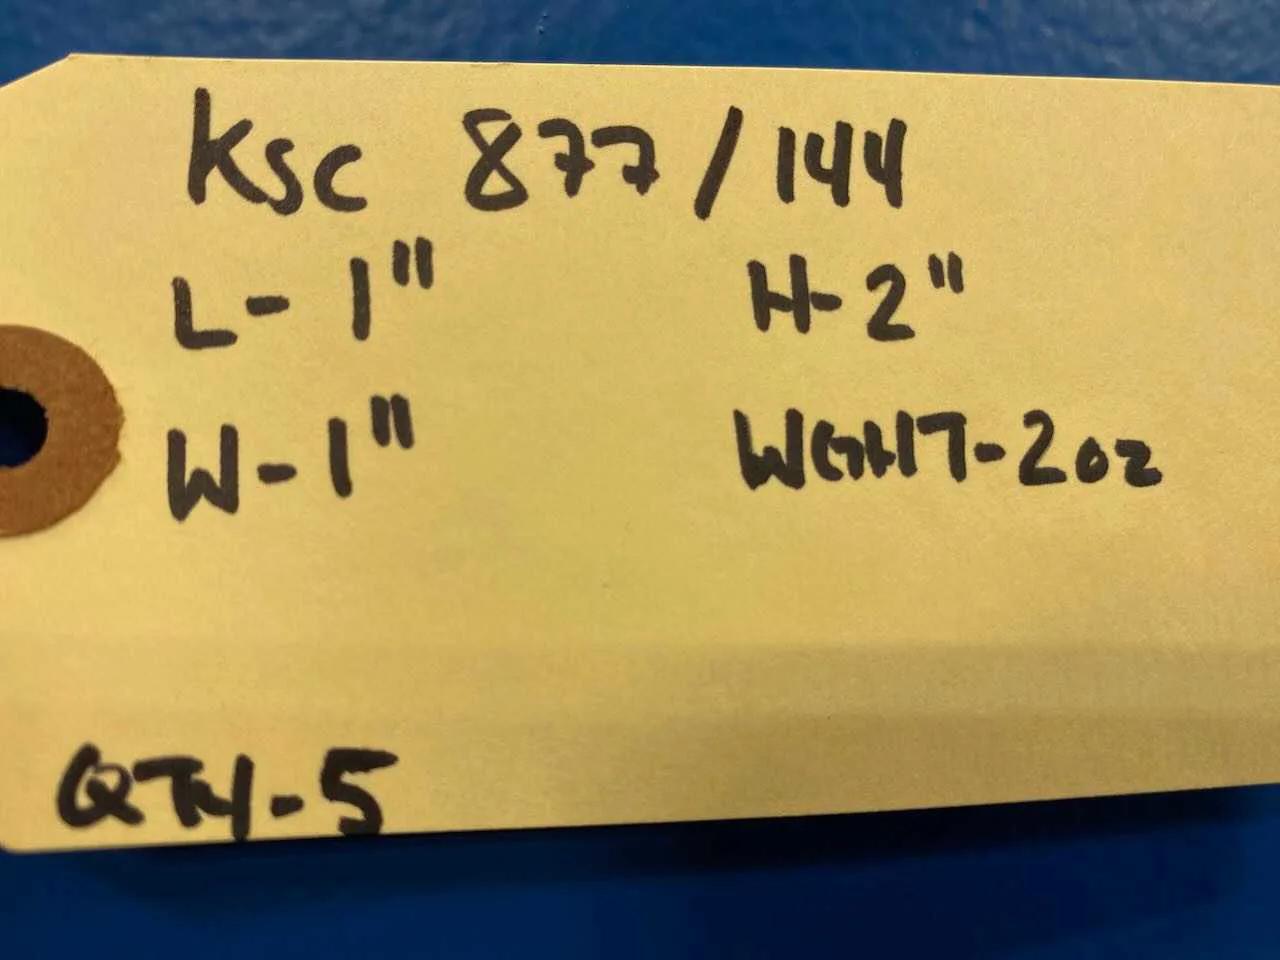 KSC 877/144
L-1" H-2"
W-1" WGHT-2oz
QTY-5